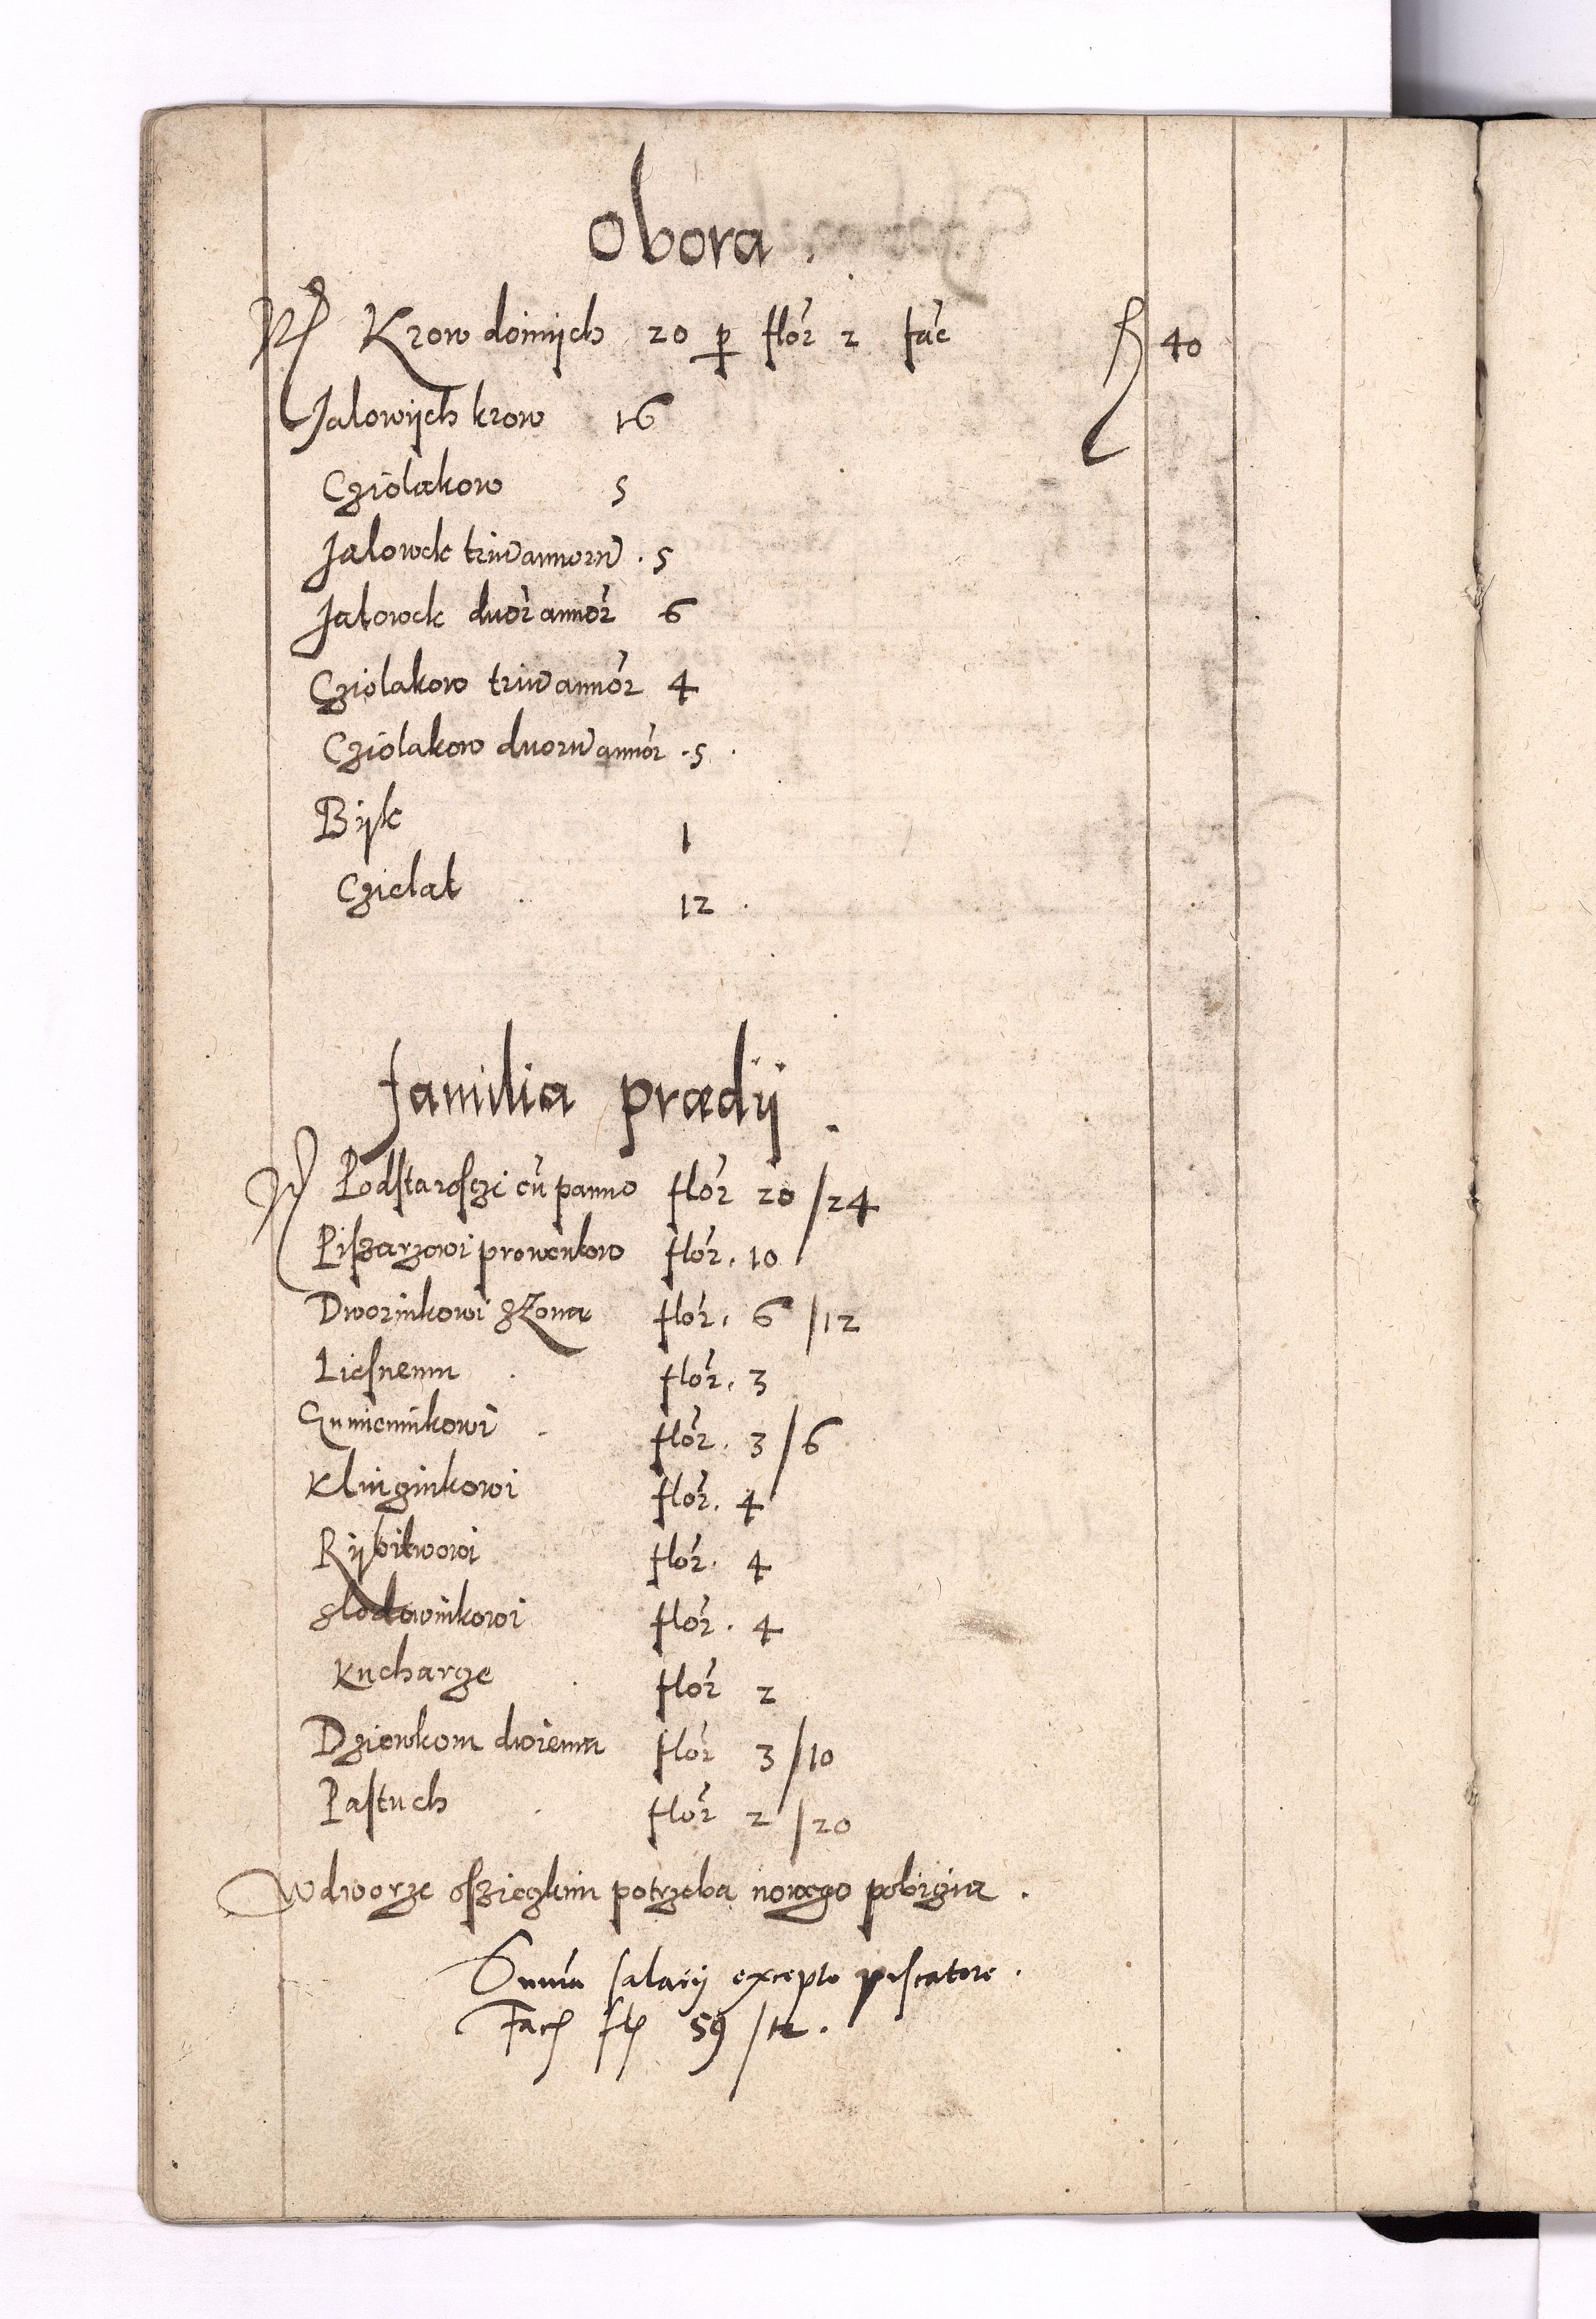 Obora.
Krow doinych 20 p flor 2 fac fl 40
Jalowych krow 16
Cziolakow 5
Jalowek trium annorum . 5
Jalowek duor annor 6
Cziolakow trium annor 4
Cziolakow duorum annor . 5 .
Byk 1
Czielat . 12 .
Familia prædij .
Podstaroszczi cu panno flor 20 /24
Piszarzowi prowenkow flor . 10
Dwornikowi z Zona flor . 6 /12
Liesnemu . flor . 3
Gumiennikowi . flor . 3 /6
flor . 4
Rybitwowi flor . 4
Slodownikowi flor . 4
Kucharze . flor 2
Dziewkom dwiema flor 3 /10
Pastuch . flor 2 /20
W dworze potrzeba nowego pobizia .
Suma salarij excepto piscatore .
Fac fl 59 /12 .